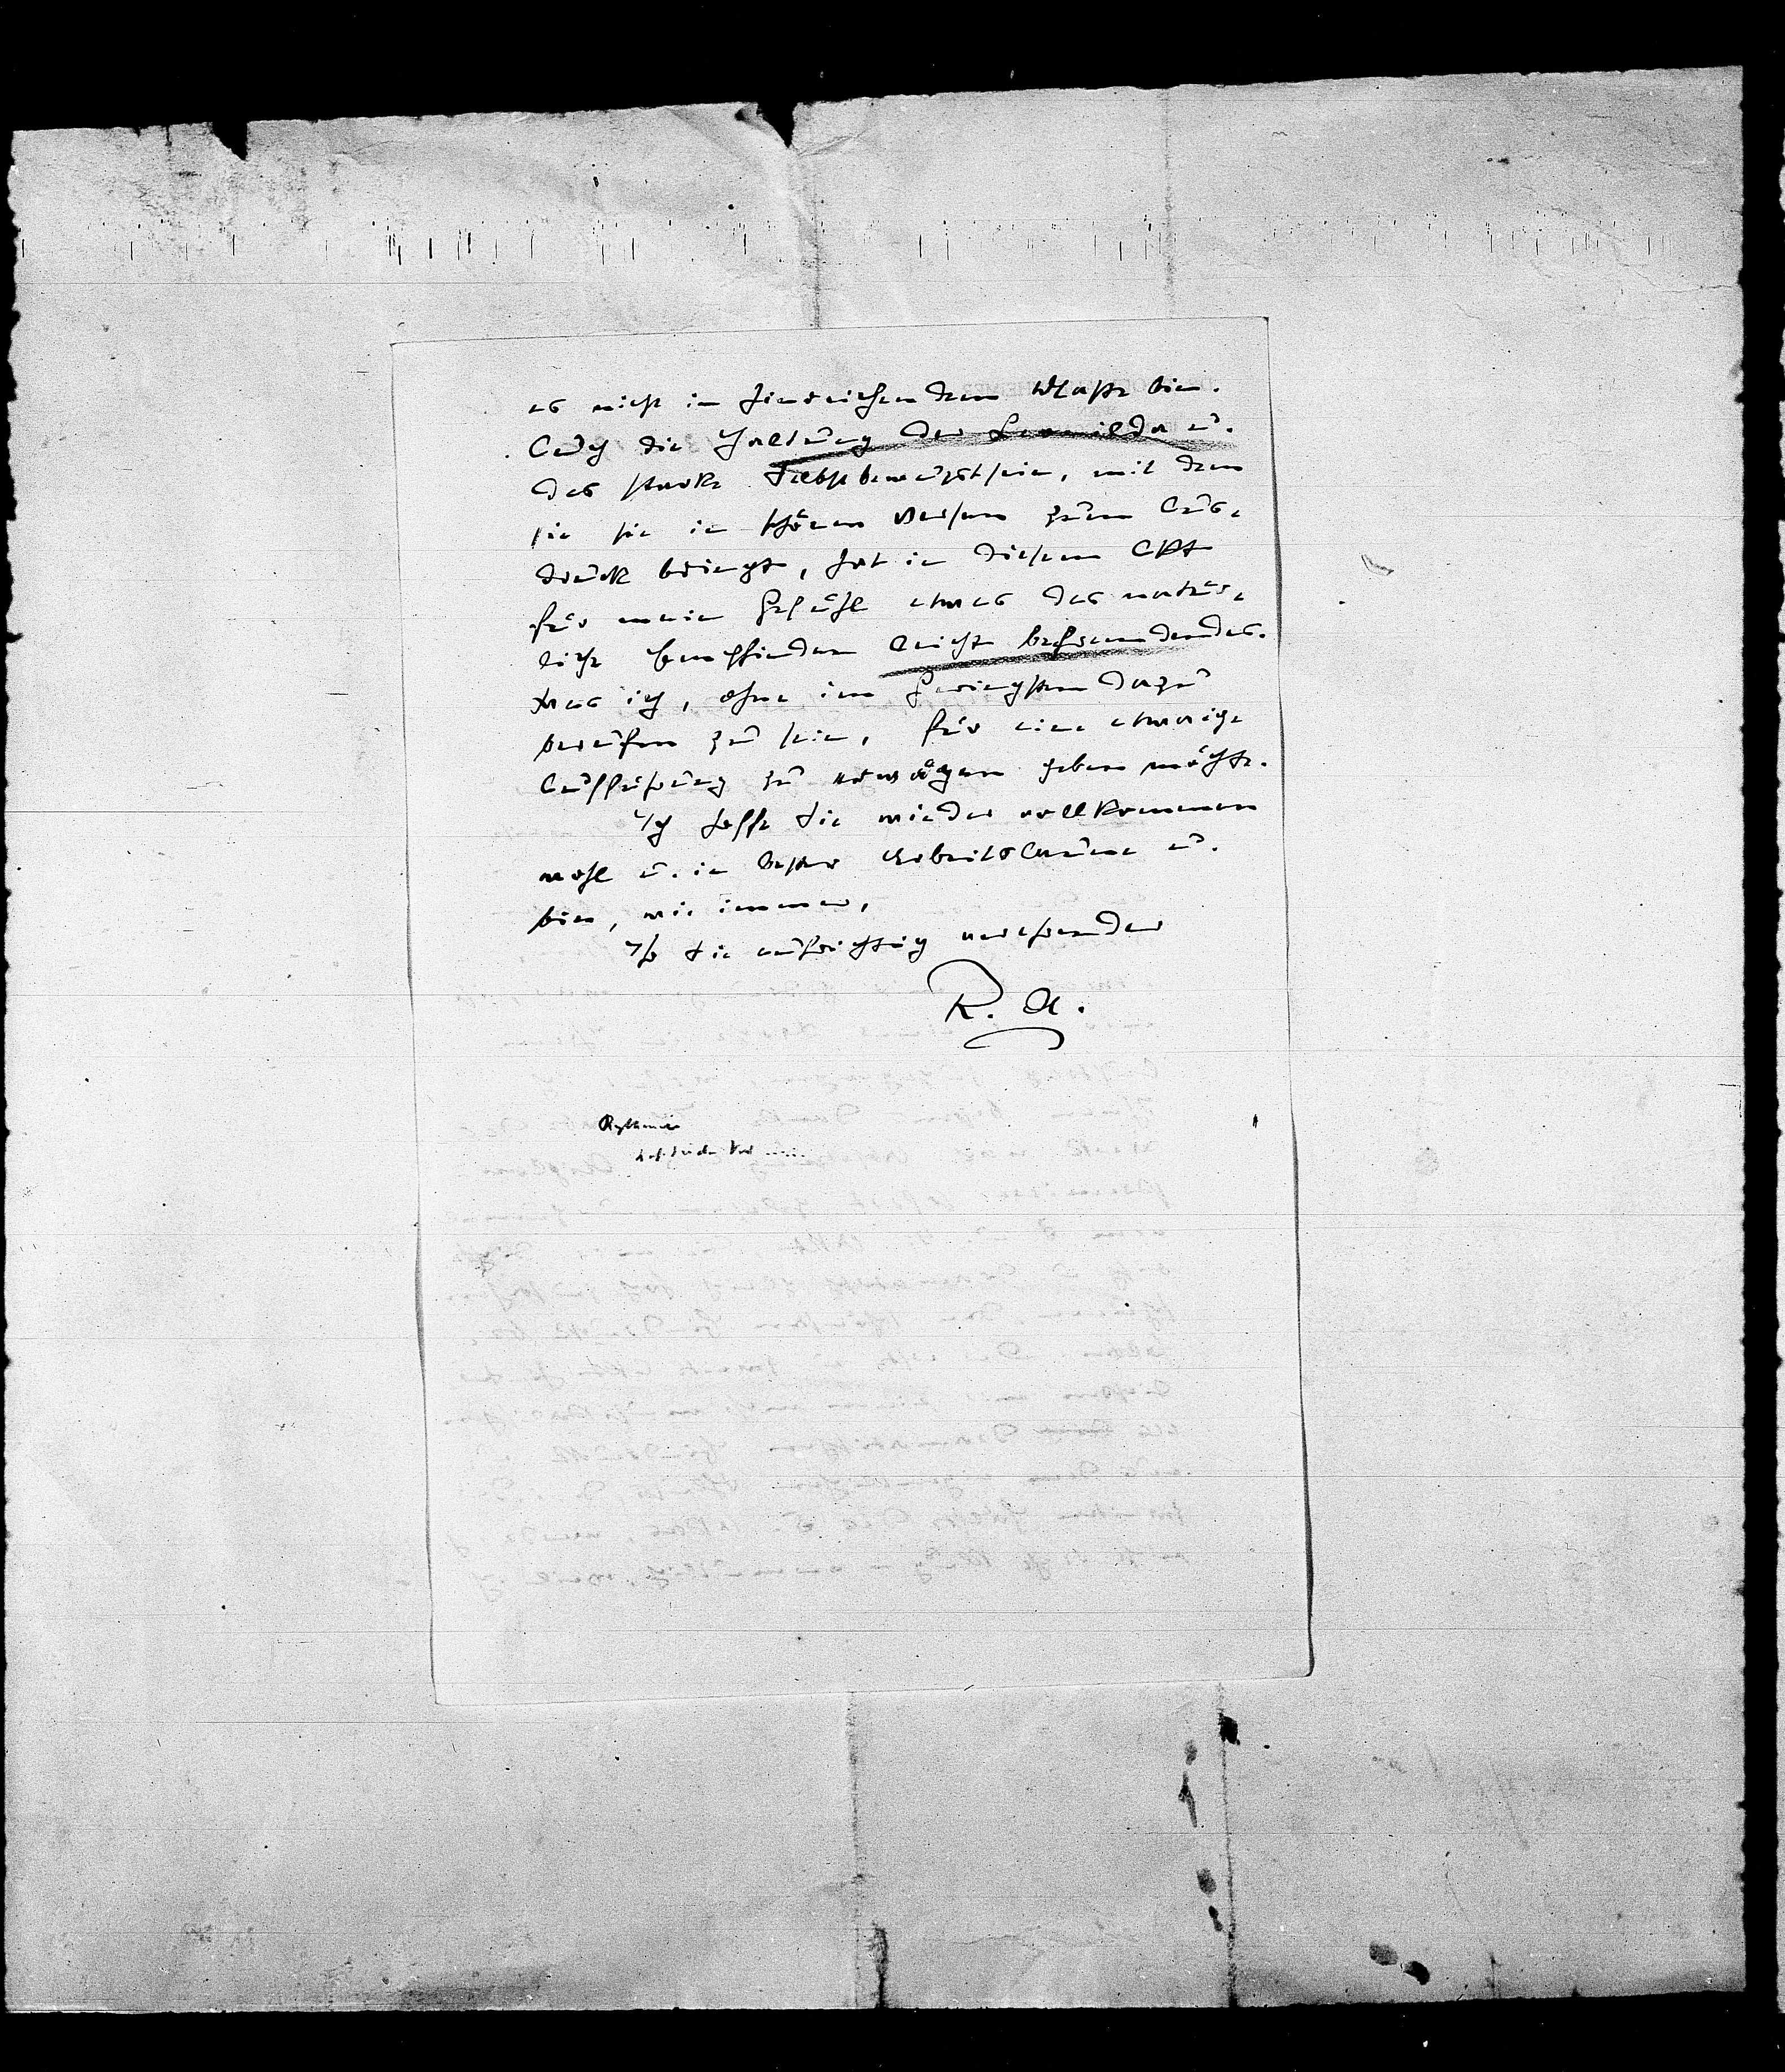 es nicht in hinreichendem Maße bin.
Auch die Haltung der Leonilda u.
das starke Selbstbewußtsein, mit dem
sie sie in schönen Versen zum Aus-
druck bringt, hat in diesem Akt
für mein Gefühl etwas das natür-
liche Empfinden leicht befremdendes.
was ich, ohne im Geringsten dazu
berufen zu sein, für eine etwaige
Aufführung zu erwägen geben möchte.
Ich hoffe Sie wieder vollkommen
wohl u. in bester Arbeitslaune u.
bin, wie immer,
Ihr Sie aufrichtig verehrender
R. A.